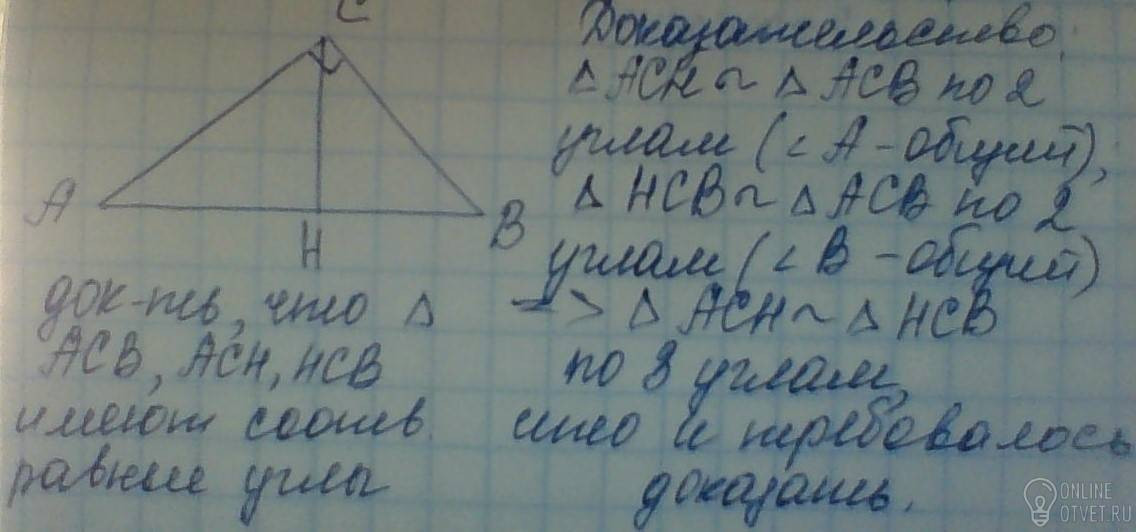 C
A
H
B
док-ть, что Δ
ACB, ACH, HCB
имеют соотв.
равные углы
Доказательство:
Δ ACH ~ Δ ACB по 2
углам (∠ A - общий),
Δ HCB ~ Δ ACB по 2
углам (∠ B - общий)
=> Δ ACH ~ Δ HCB
по 3 углам,
что и требовалось
доказать.
ONLINE
OTVET.RU